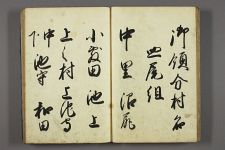 御領分村名
皿尾組
中里 沼尻
小敷田 池上
上之村 上池守
下
中 池守 和田